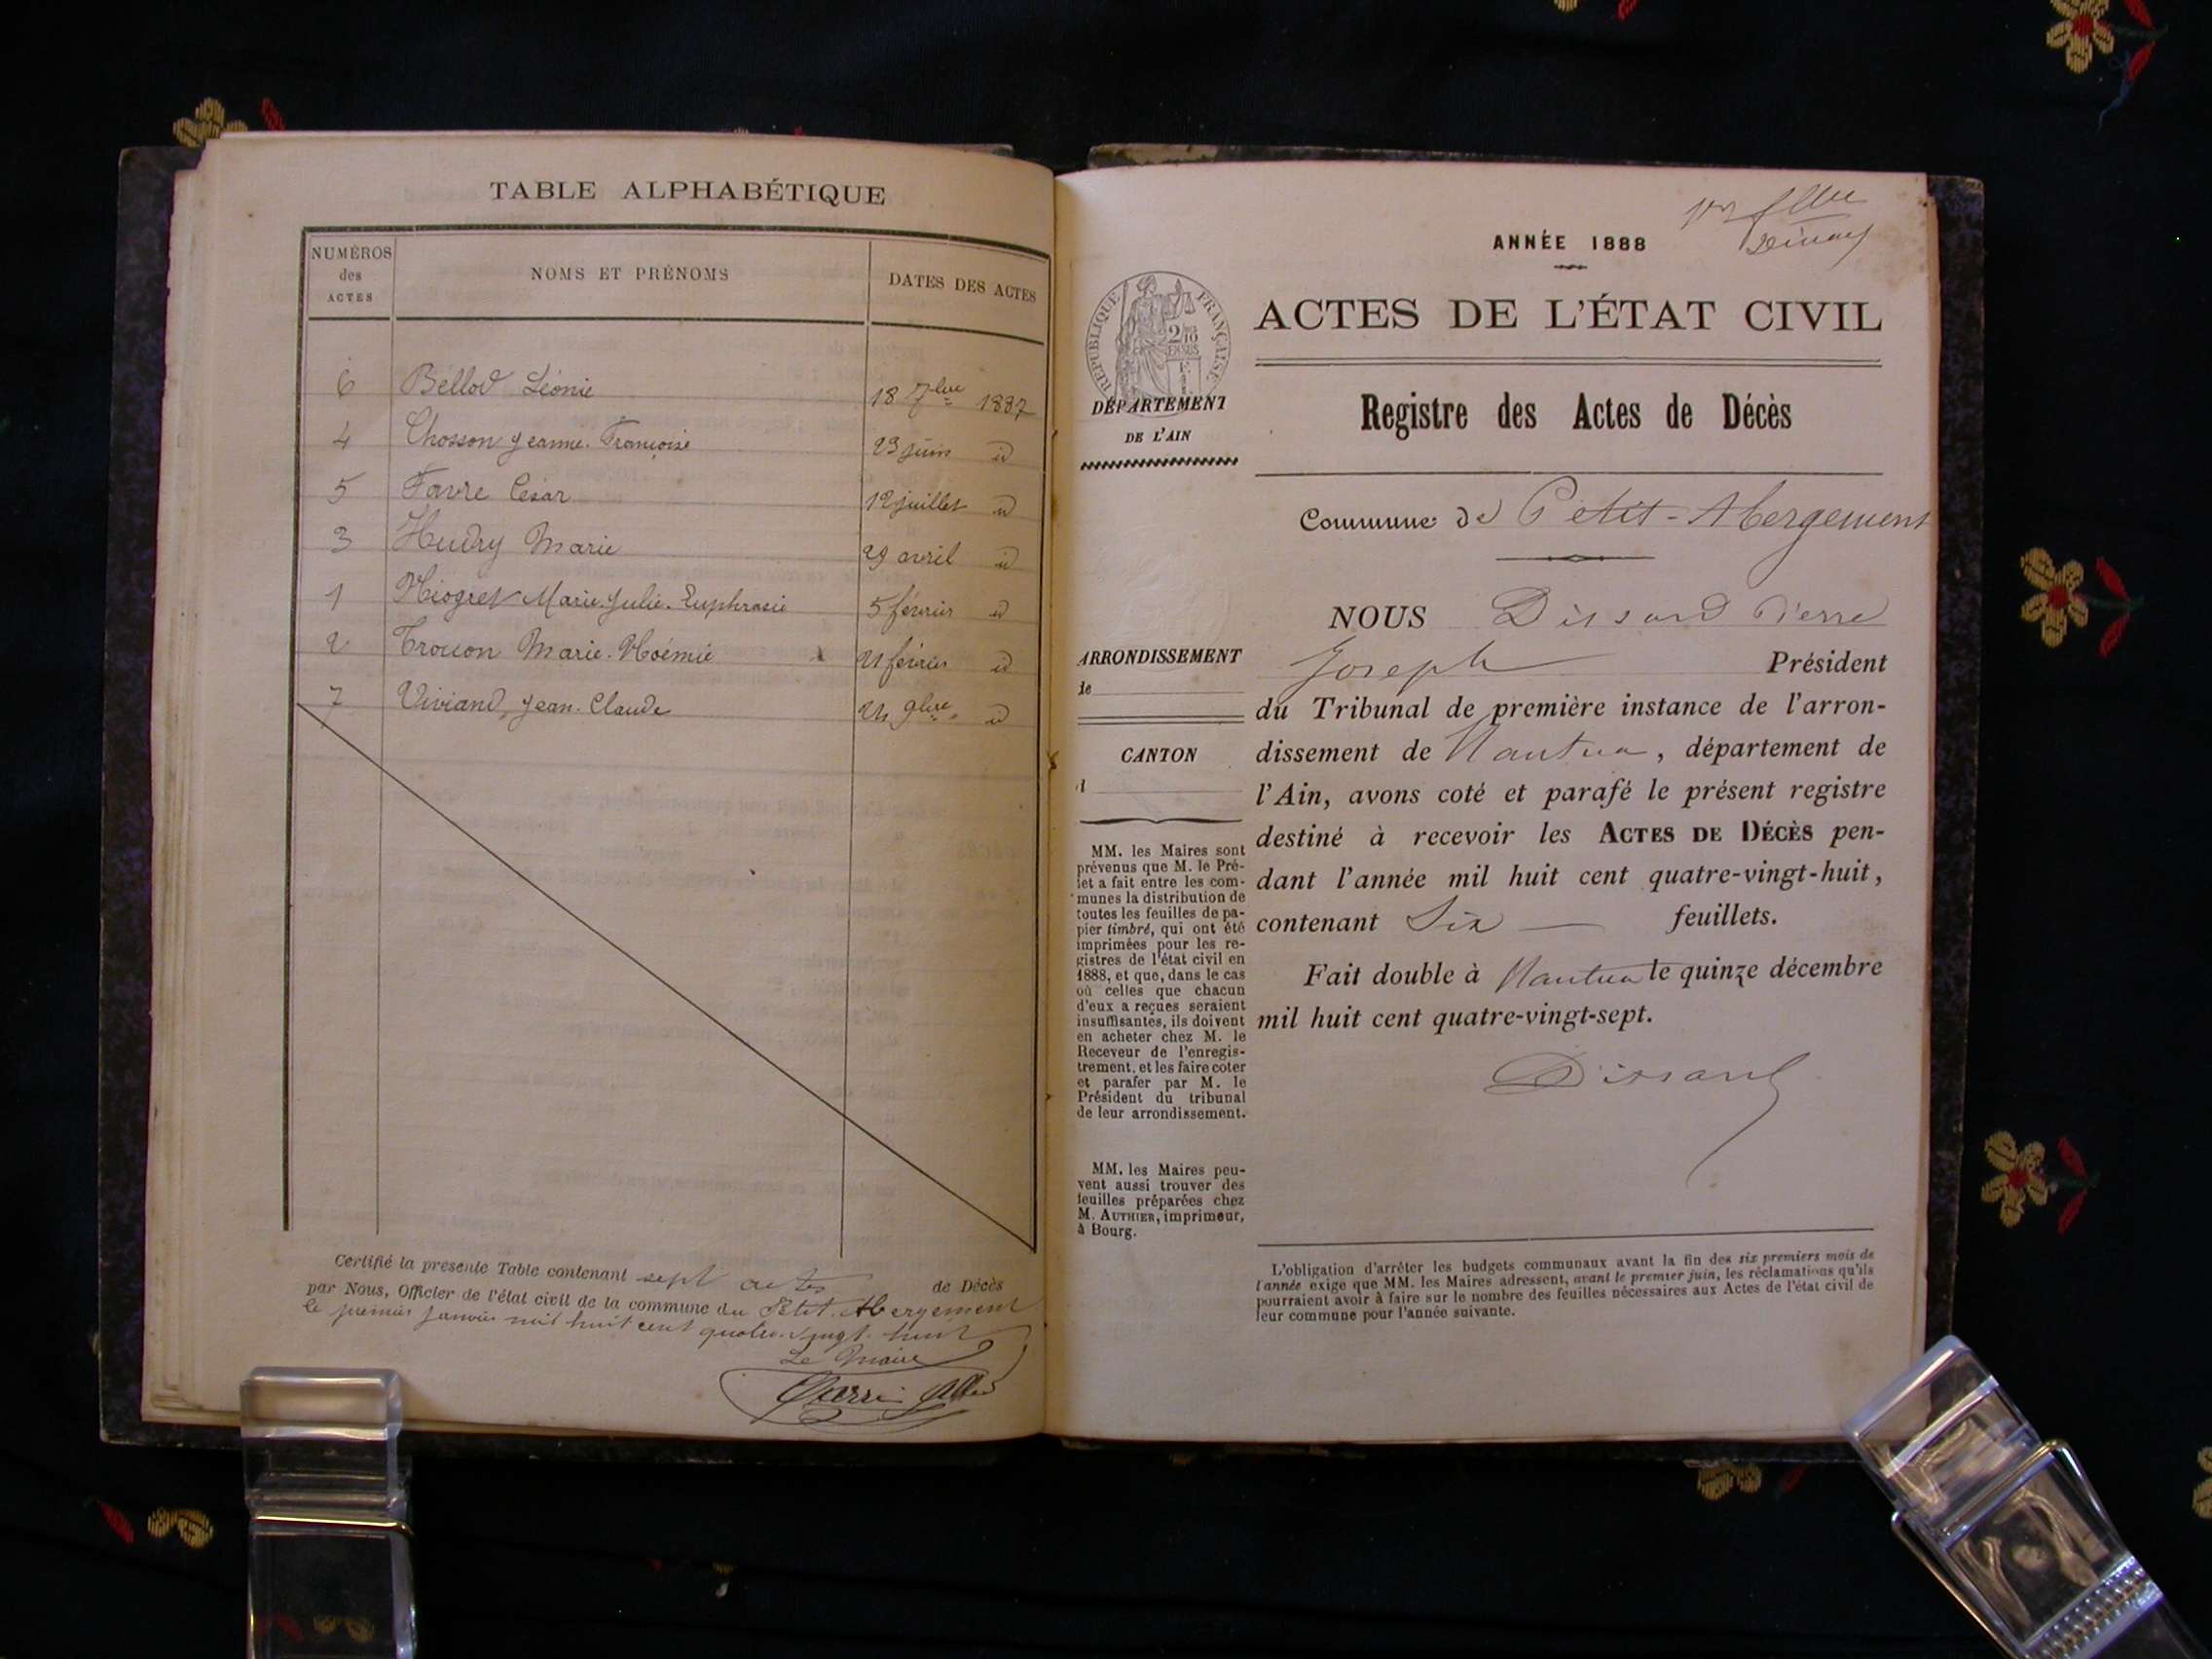 TABLE ALPHABÉTIQUE
NUMÉROS des ACTES
NOMS ET PRÉNOMS
DATES DES ACTES
6 Bellod Léonie 18 7bre 1887
4 Chosson Jeanne-Françoise 23 juin id
5 Favre César 12 juillet id
3 Hudry Marie 29 avril id
1 Niogret Marie-Julie-Euphrasie 5 février id
2 Trouon Marie-Noémie 21 février id
7 Viviand, Jean-Claude 21 9bre id
Certifié la présente Table contenant sept actes de Décès
par Nous, Officier de l'état civil de la commune du Petit-Abergement
le premier janvier mil huit cent quatre-vingt-huit
Le Maire
1er
ANNÉE 1888
RÉPUBLIQUE FRANÇAISE
2/10 EN SUS
ACTES DE L'ÉTAT CIVIL
DÉPARTEMENT
DE L'AIN
Registre des Actes de Décès
Commune de Petit-Abergement
NOUS Dissard Pierre
Joseph Président
du Tribunal de première instance de l'arron-
dissement de Nantua, département de
l'Ain, avons coté et parafé le présent registre
destiné à recevoir les ACTES DE DÉCÈS pen-
dant l'année mil huit cent quatre-vingt-huit,
contenant Six feuillets.
Fait double à Nantua le quinze décembre
mil huit cent quatre-vingt-sept.
Dissard
ARRONDISSEMENT
de
CANTON
d
MM. les Maires sont
prévenus que M. le Pré-
fet a fait entre les com-
munes la distribution de
toutes les feuilles de pa-
pier timbré, qui ont été
imprimées pour les re-
gistres de l'état civil en
1888, et que, dans le cas
où celles que chacun
d'eux a reçues seraient
insuffisantes, ils doivent
en acheter chez M. le
Receveur de l'enregis-
trement, et les faire coter
et parafer par M. le
Président du tribunal
de leur arrondissement.
MM. les Maires peu-
vent aussi trouver des
feuilles préparées chez
M. AUTHIER, imprimeur,
à Bourg.
L'obligation d'arrêter les budgets communaux avant la fin des six premiers mois de
l'année exige que MM. les Maires adressent, avant le premier juin, les réclamations qu'ils
pourraient avoir à faire sur le nombre des feuilles nécessaires aux Actes de l'état civil de
leur commune pour l'année suivante.